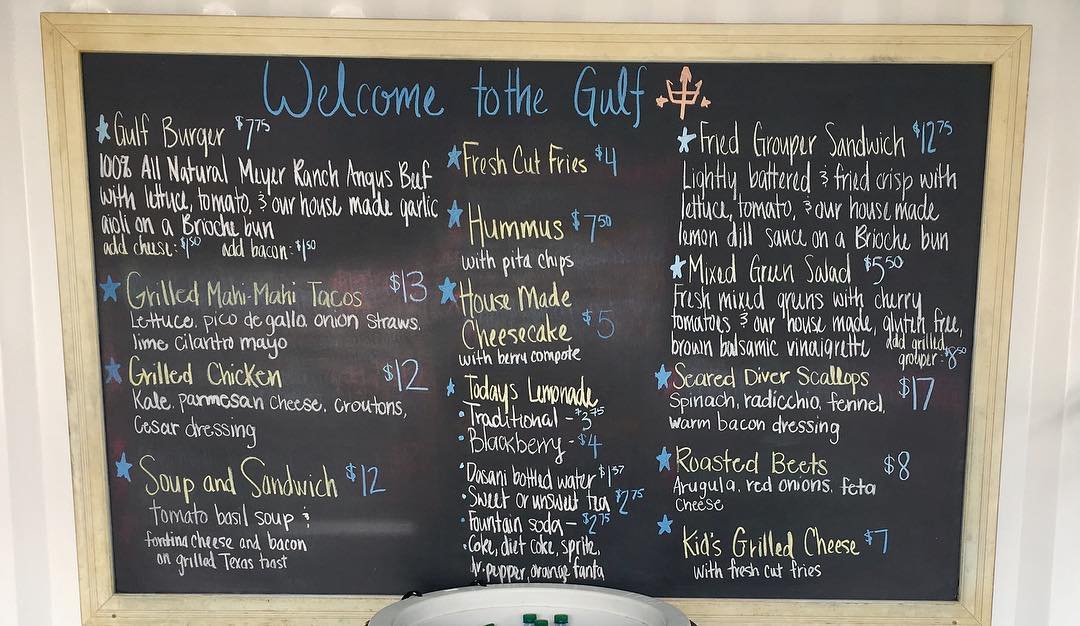 Welcome to the Gulf
Gulf Burger $7.75
100% All Natural Meyer Ranch Angus Beef
with lettuce, tomato, & our house made garlic
aioli on a Brioche bun
add cheese: $1.50 add bacon: $1.50
Grilled Mahi-Mahi Tacos $13
Lettuce, pico de gallo, onion straws,
lime cilantro mayo
Grilled Chicken $12
Kale, parmesan cheese, croutons,
Cesar dressing
Soup and Sandwich $12
Tomato basil soup &
fontina cheese and bacon
on grilled Texas toast
Fresh Cut Fries $4
Hummus $7.50
with pita chips
House Made
Cheesecake $5
with berry compote
Todays Lemonade
• Traditional - $3.75
• Blackberry - $4
• Dasani bottled water $1.37
• Sweet or unsweet tea $2.75
• Fountain soda - $2.75
• Coke, diet coke, sprite,
dr. pepper, orange fanta
Fried Grouper Sandwich $12.75
Lightly battered & fried crisp with
lettuce, tomato, & our house made
lemon dill sauce on a Brioche bun
Mixed Green Salad $5.50
Fresh mixed greens with cherry
tomatoes & our house made, gluten free,
brown balsamic vinaigrette add grilled
grouper: $8.50
Seared Diver Scallops $17
Spinach, radicchio, fennel,
warm bacon dressing
Roasted Beets $8
Arugula, red onions, feta
cheese
Kid's Grilled Cheese $7
with fresh cut fries